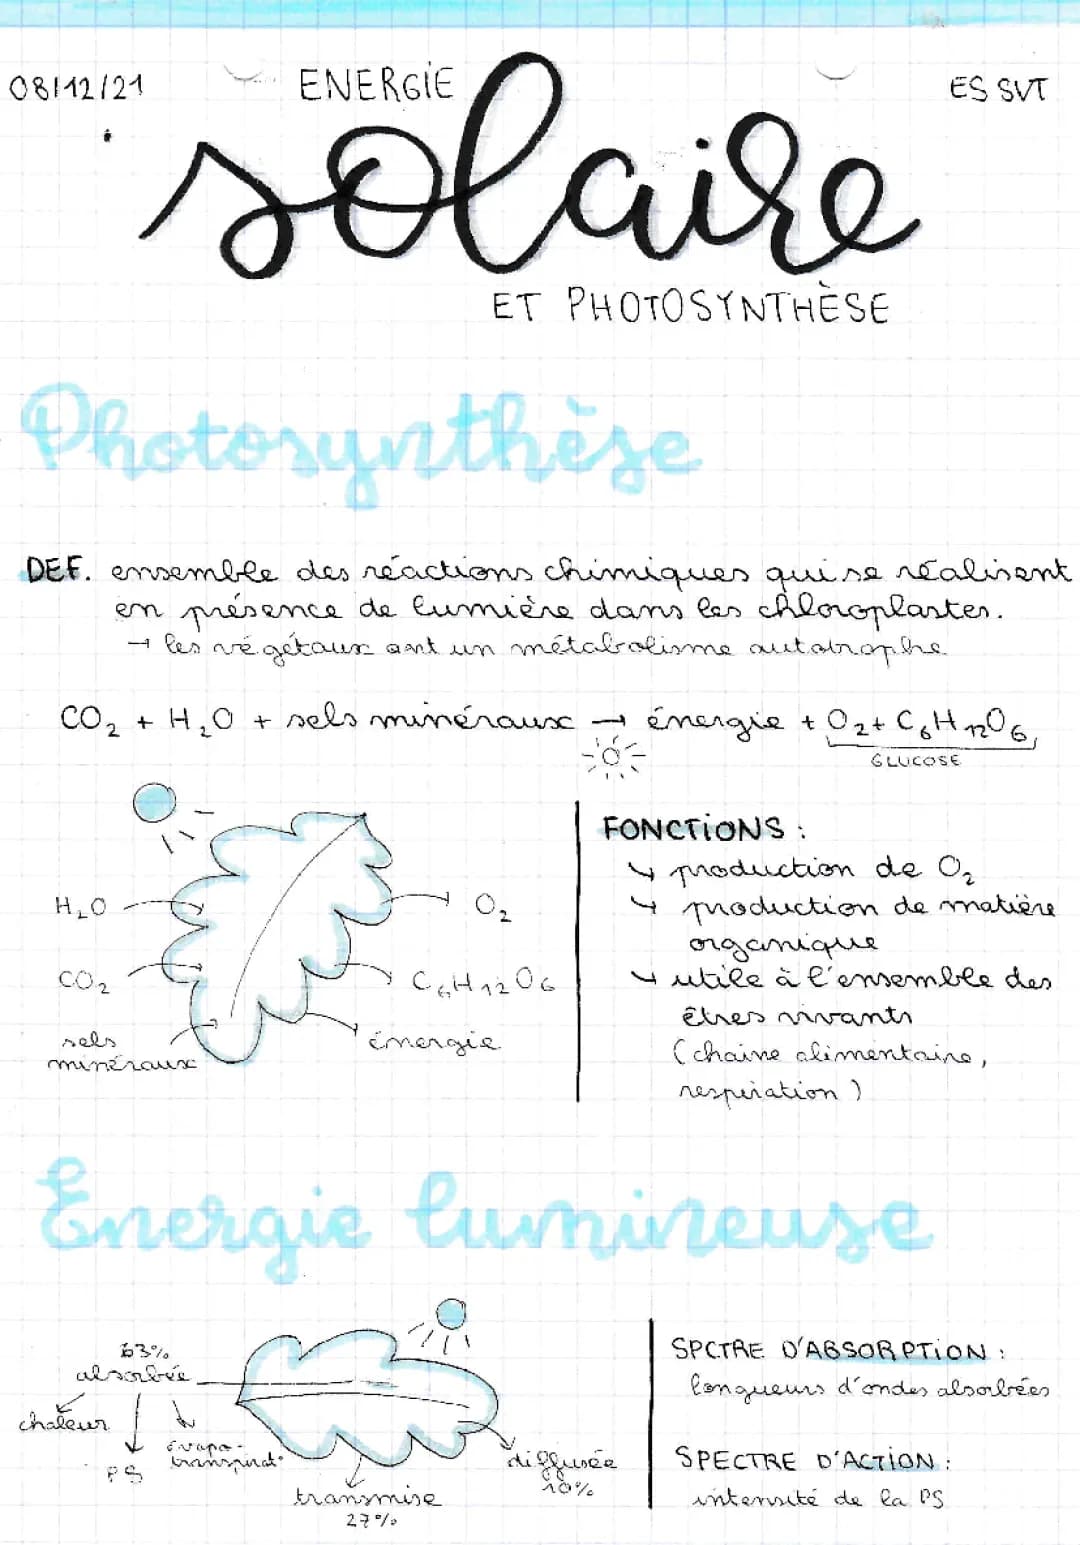 08/12/21
ENERGIE
ES SVT
solaire
ET PHOTOSYNTHÈSE
Photosynthèse
DEF. ensemble des réactions chimiques qui se réalisent
en présence de lumière dans les chloroplastes.
→ les végétaux ont un métabolisme autotrophe
CO₂ + H₂O + sels minéraux → énergie + O₂ + C₆H₁₂O₆
GLUCOSE
H₂O
CO₂
sels
minéraux
O₂
C₆H₁₂O₆
énergie
FONCTIONS :
↳ production de O₂
↳ production de matière
organique
↳ utile à l'ensemble des
êtres vivants
(chaine alimentaire,
respiration)
Energie lumineuse
63%
absorbée
chaleur
PS
évapo-
transpirat°
transmise
27%
diffusée
10%
SPCTRE D'ABSORPTION :
longueurs d'ondes absorbées
SPECTRE D'ACTION :
intensité de la PS